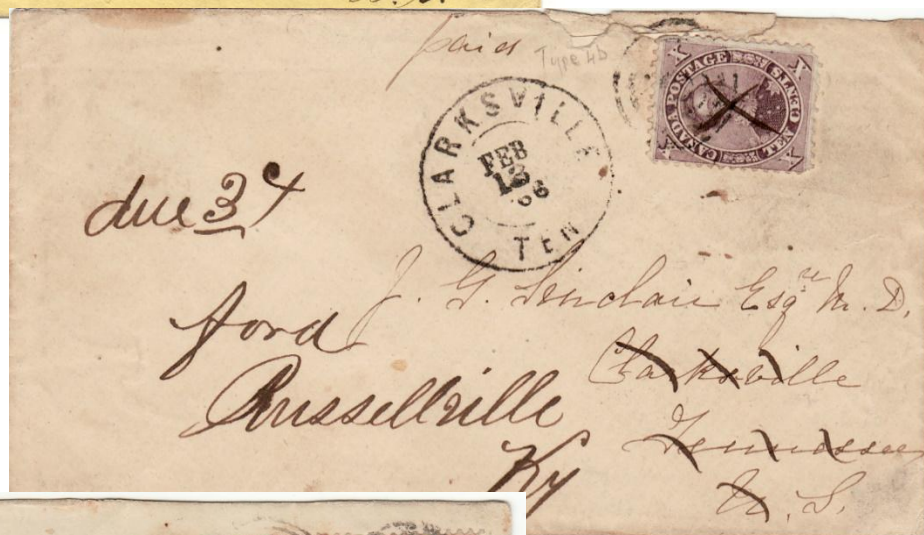 paid
Type 4b
CANADA POSTAGE
TEN CENTS
X X X X
CLARKSVILLE
FEB
13
66
TEN
due 3 ¢
J. G. Sinclair Esqre M. D.
Clarksville
Tennessee
U. S.
ford
Russellville
Ky